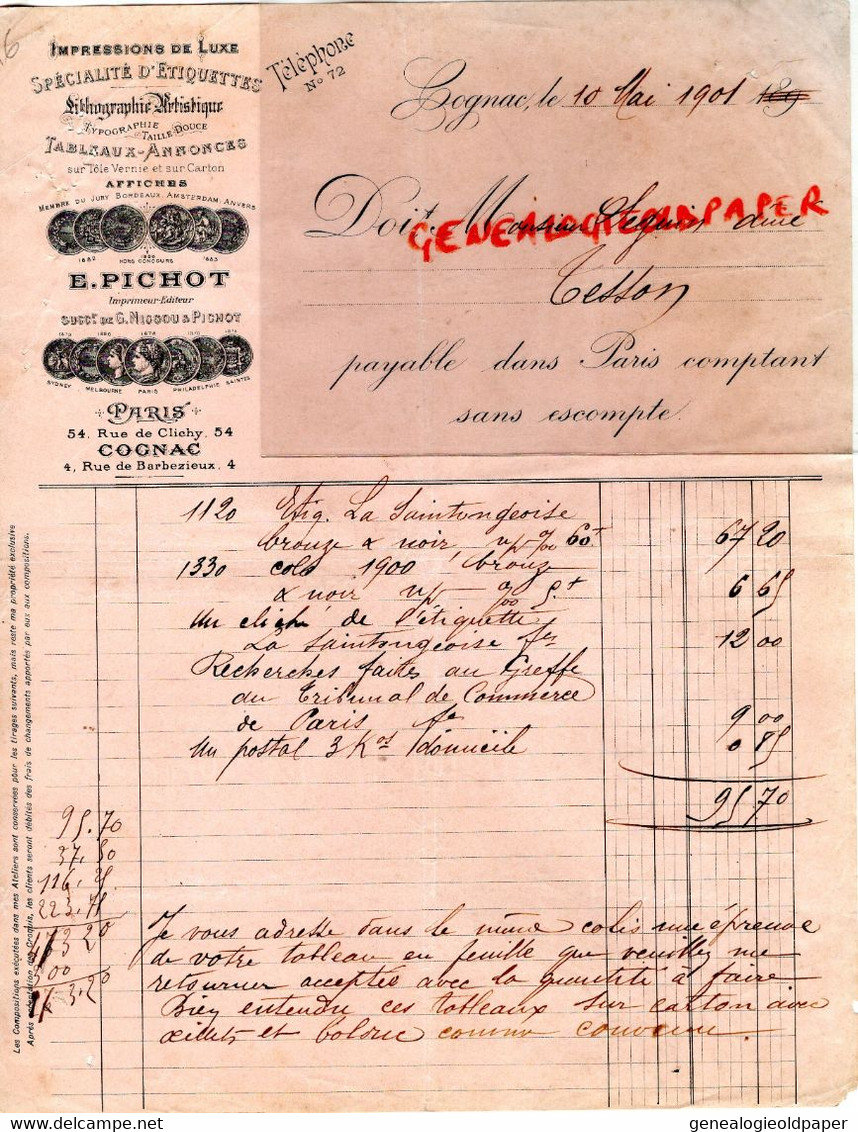 IMPRESSIONS DE LUXE
SPÉCIALITÉ D'ETIQUETTES
Lithographie Artistique
TYPOGRAPHIE TAILLE DOUCE
TABLEAUX-ANNONCES
sur Tôle Vernie et sur Carton
AFFICHES
MEMBRE DU JURY BORDEAUX, AMSTERDAM, ANVERS
1882 HORS CONCOURS 1885
E. PICHOT
Imprimeur-Editeur
SUCCR. DE G. NISSOU & PICHOT
SYDNEY MELBOURNE PARIS PHILADELPHIE SAINTES
PARIS
54, Rue de Clichy, 54
COGNAC
4, Rue de Barbezieux, 4
Téléphone
No 72
Cognac, le 10 Mai 1901 189
Doit Monsieur Seguin aîné
GENEALOGIEOLDPAPER
Tesson
payable dans Paris comptant
sans escompte.
1120 Etiq. La Saintongeoise
bronze & noir, 60f 67 20
1330 cols 1900 bronze
& noir 5f 6 65
Un cliché de l'étiquette
La Saintongeoise 12 00
Recherches faites au Greffe
du Tribunal de Commerce
de Paris 9 00
Un postal 3 Kos domicile 0 85
95 70
95.70
37,50
223.75
Je vous adresse dans le même colis une épreuve
de votre tableau en feuille que veuillez me
retourner acceptée avec la quantité à faire
Bien entendu ces tableaux sur carton avec
œillets et bolduc comme convenu.
Les Compositions exécutées dans mes Ateliers sont conservées pour les tirages suivants, mais reste ma propriété exclusive
Après acceptation des Croquis, les clients seront débités des frais de changements apportés par eux aux compositions.
genealogieoldpaper